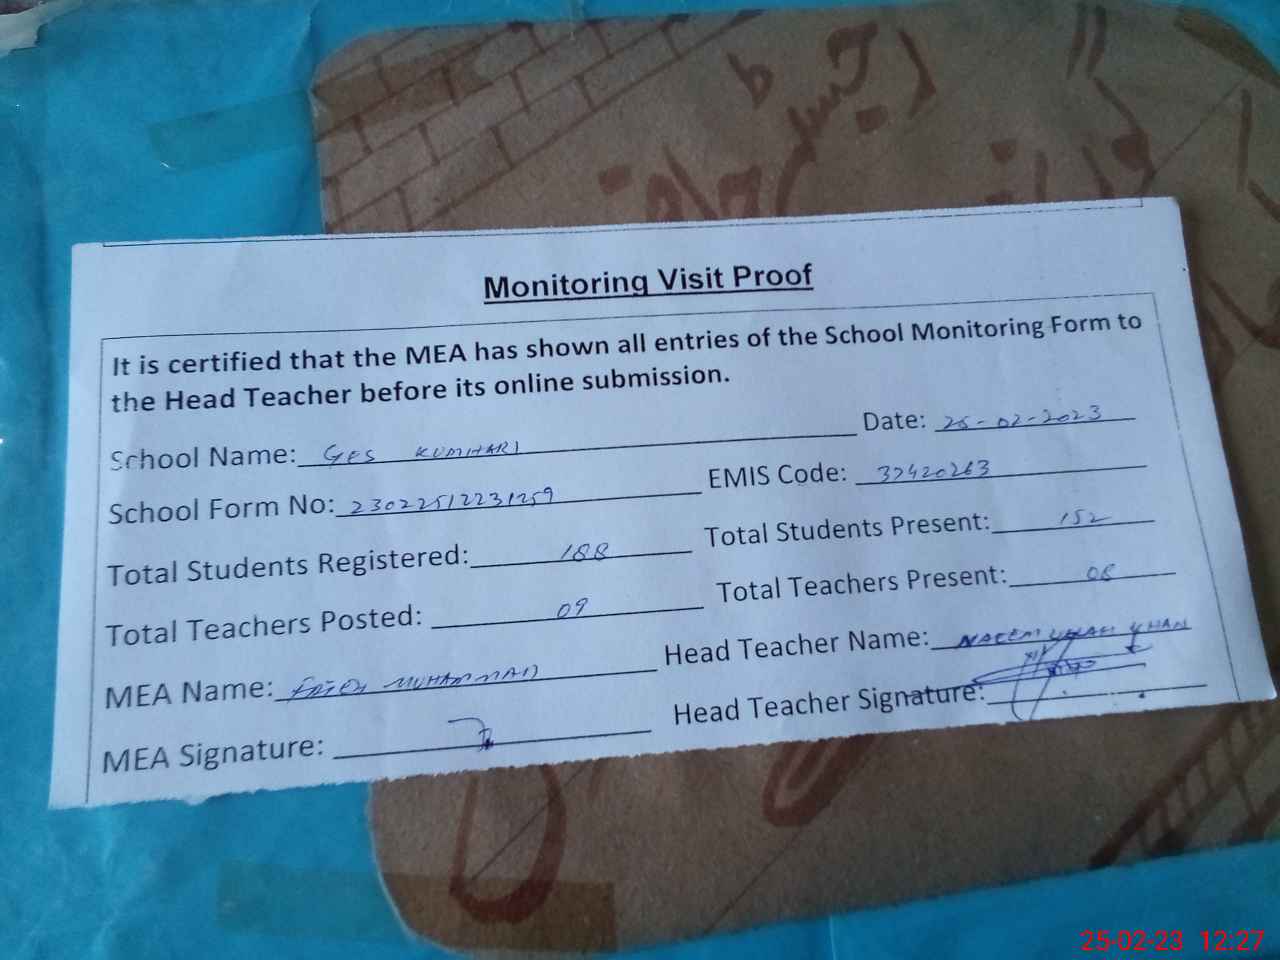 Monitoring Visit Proof
It is certified that the MEA has shown all entries of the School Monitoring Form to
the Head Teacher before its online submission.
School Name: GES KUMHARI Date: 25-02-2023
School Form No: 23022512231259 EMIS Code: 32420263
Total Students Registered: 188 Total Students Present: 152
Total Teachers Posted: 09 Total Teachers Present: 08
MEA Name: MUHAMMAD Head Teacher Name: NAEEM ULLAH KHAN
MEA Signature: Head Teacher Signature:
25-02-23 12:27